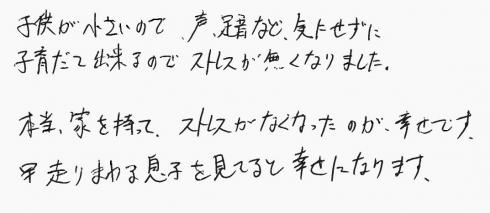 子供が小さいので、声、足音など、気にせずに
子育だて出来るのでストレスが無くなりました。
本当、家を持って、ストレスがなくなったのが、幸せです。
走りまわる息子を見てると幸せになります。